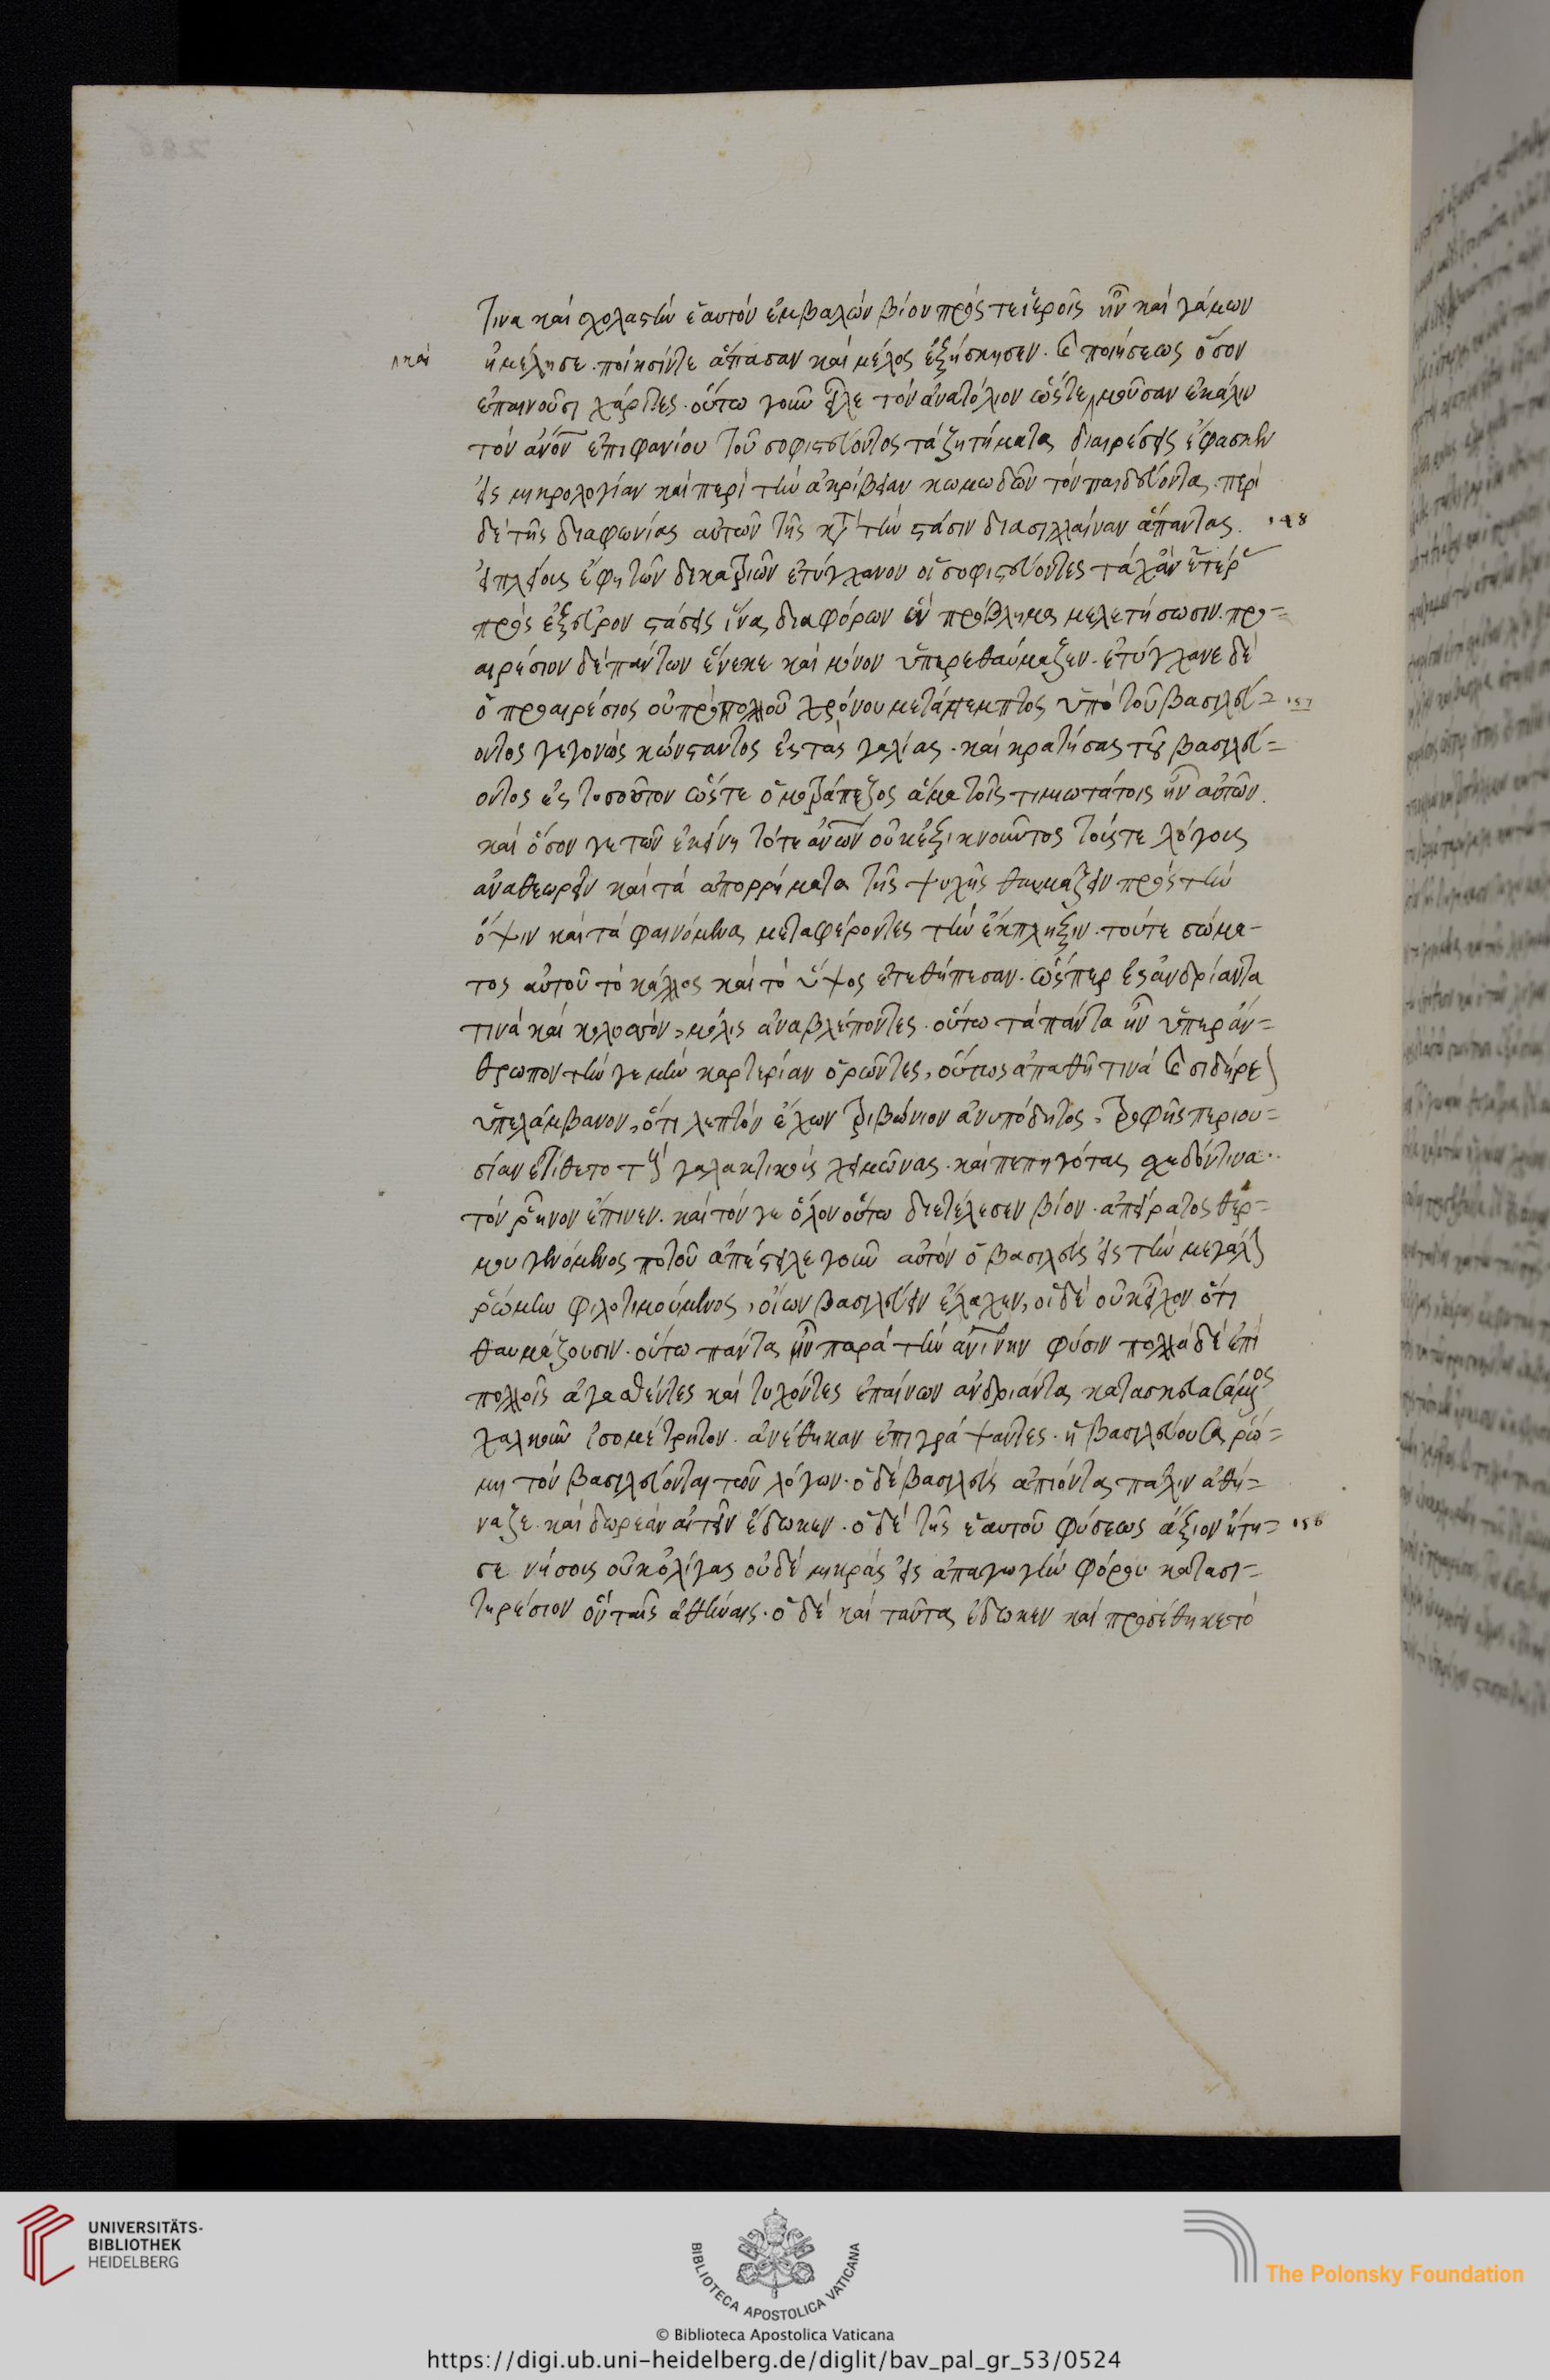 τινα καὶ σχολαστὴν ἑαυτὸν ἐμβαλὼν βίον πρός τε ἱεροῖς ἦν καὶ γάμων
καὶ
ἠμέλησε. ποίησίν τε ἅπασαν καὶ μέλος ἐξήσκησεν. καὶ ποιήσεως ὅσον
ἐπαινοῦσι χάριτες. οὕτω γοῦν εἷλε τὸν ἀνατόλιον ὥστε μοῦσαν ἐκάλει
τὸν ἀνον ἐπιφανίου τοῦ σοφιστεύοντος τὰ ζητήματα διαιρέσεις ἔφασκεν
εἰς μικρολογίαν καὶ περὶ τὴν ἀκρίβειαν κωμωδῶν τὸν παιδεύοντα. περὶ
δὲ τῆς διαφωνίας αὐτῶν τῆς κατὰ τὴν στάσιν διασιλλαίναν ἅπαντας. 148
εἰ πλείους ἔφη τῶν δεκατριῶν ἐτύγχανον οἱ σοφιστεύοντες τάχ' ἂν ἑτέρ
πρὸς ἐξεῦρον στάσεις ἵνα διαφόρων ἓν πρόβλημα μελετήσωσιν. προ-
αιρέσιον δὲ πάντων ἕνεκε καὶ μόνον ὑπερεθαύμαζεν. ἐτύγχανε δὲ
ὁ προαιρέσιος οὐ πρὸ πολλοῦ χρόνου μετάπεμπτος ὑπὸ τοῦ βασιλεύ= 157
οντος γεγονὼς κώνσταντος ἐς τὰς γαλίας. καὶ κρατήσας τοῦ βασιλεύ=
οντος ἐς τοσοῦτον ὥστε ὁμοτράπεζος ἅμα τοῖς τιμιωτάτοις ἦν αὐτῶν.
καὶ ὅσον γε τῶν ἐκείνη τότε ἀνων οὐκ ἐξικνοῦντος τούς τε λόγους
ἀναθεωρεῖν καὶ τὰ ἀπορρήματα τῆς ψυχῆς θαυμάζειν πρὸς τὴν
ὄψιν καὶ τὰ φαινόμενα μεταφέροντες τὴν ἔκπληξιν. τούτε σώμα-
τος αὐτοῦ τὸ κάλλος καὶ τὸ ὕψος ἐτεθήπεσαν. ὥσπερ ἐς ἀνδρίαντα
τινὰ καὶ κολοσὸν, μόλις ἀναβλέποντες. οὕτω τὰ πάντα ἦν ὑπὲρ ἄν=
θρωπον τὴν γε μὴν καρτερίαν ὁρῶντες, οὕτως ἀπαθῆ τινὰ καὶ σιδήρε
ὑπελάμβανον, ὅτι λεπτὸν ἔχων τριβώνιον ἀνυπόδητος, τροφῆς περιου=
σίαν ἐτίθετο τοὺς γαλακτικοὺς χειμῶνας. καὶ πεπηγότας σχεδόν τινα..
τὸν ῥῆνον ἔπινεν. καὶ τόν γε ὅλον οὕτω διετέλεσεν βίον. ἀπείρατος θερ=
μου γενόμενος ποτοῦ ἀπέστειλε γοῦν αὐτὸν ὁ βασιλεὺς εἰς τὴν μεγάλην
ῥώμην φιλοτιμούμενος, οἵων βασιλεύειν ἔλαχεν, οἱ δὲ οὐκ εἶχον ὅτι
θαυμάζουσιν. οὕτω πάντα ἦν παρὰ τὴν ἀνίνην φύσιν πολλὰ δὲ ἐπὶ
πολλοῖς ἀγασθέντες καὶ τυχόντες ἐπαίνων ἀνδριάντα κατασκευασάμενος
χαλκοῦν ἰσομέτρητον. ἀνέθηκαν ἐπιγράψαντες. ἡ βασιλεύουσα ῥώ=
μη τὸν βασιλεύοντα τῶν λόγων. ὁ δὲ βασιλεὺς ἀπιόντα πάλιν ἀθή=
ναζε. καὶ δωρεὰν αἰτεῖν ἔδωκεν. ὁ δὲ τῆς ἑαυτοῦ φύσεως ἄξιον ἤτη= 158
σε νήσους οὐκ ὀλίγας οὐδὲ μικρὰς εἰς ἀπαγωγὴν φόρου κατασι-
τηρέσιον οὖν ταῖς ἀθήναις. ὁ δὲ καὶ ταῦτα ἔδωκεν καὶ προσέθηκε τὸ
UNIVERSITÄTS-
BIBLIOTHEK
HEIDELBERG
BIBLIOTECA APOSTOLICA VATICANA
The Polonsky Foundation
© Biblioteca Apostolica Vaticana
https://digi.ub.uni-heidelberg.de/diglit/bav_pal_gr_53/0524